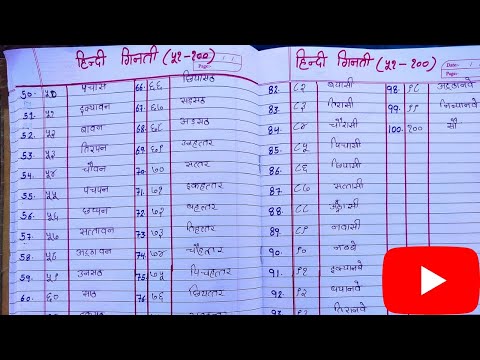 हिन्दी गिनती (५१-१००)
Page:
50. ५० पचास
51. ५१ इक्यावन
52. ५२ बावन
53. ५३ तिरपन
54. ५४ चौवन
55. ५५ पचपन
56. ५६ छप्पन
57. ५७ सत्तावन
58. ५८ अठ्ठावन
59. ५९ उनसठ
60. ६० साठ
66. ६६ छियासठ
67. ६७ सड़सठ
68. ६८ अड़सठ
69. ६९ उनहत्तर
70. ७० सत्तर
71. ७१ इकहत्तर
72. ७२ बहत्तर
73. ७३ तिहत्तर
74. ७४ चौहत्तर
75. ७५ पिचहत्तर
76. ७६ छियत्तर
हिन्दी गिनती (५१-१००)
Date:
Page:
82. ८२ बयासी
83. ८३ तिरासी
84. ८४ चौरासी
85. ८५ पिचासी
86. ८६ छियासी
87. ८७ सत्तासी
88. ८८ अठ्ठासी
89. ८९ नवासी
90. ९० नब्बे
91. ९१ इक्यानवे
92. ९२ बयानवे
93. तिरानवे
98. ९८ अठ्ठानवे
99. ९९ निन्यानवे
100. १०० सौ